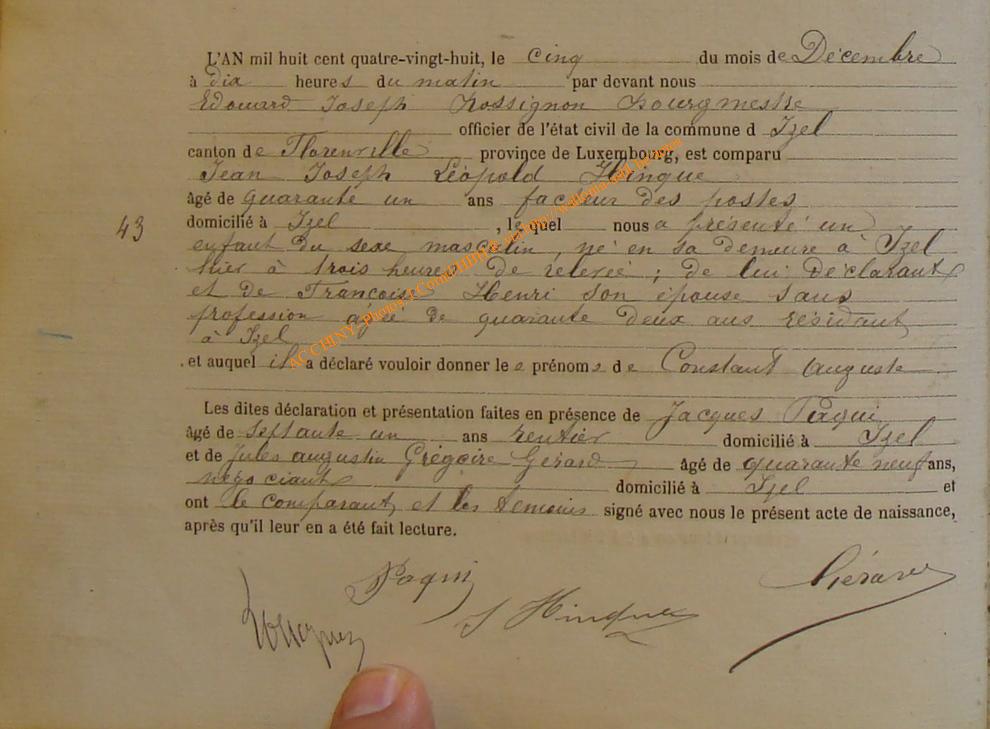 L'AN mil huit cent quatre-vingt-huit, le cinq du mois de Décembre
à dix heures du matin par devant nous
Edouard Joseph Rossignon bourgmestre
officier de l'état civil de la commune d Izel
canton de Florenville province de Luxembourg, est comparu
Jean Joseph Léopold Hinque
âgé de quarante un ans facteur des postes
43
domicilié à Izel , lequel nous a présenté un
enfant du sexe masculin, né en sa demeure à Izel
hier à trois heures de relevée ; de lui déclarant
et de Françoise Henri son épouse sans
profession agée de quarante deux ans résidant
à Izel
et auquel il a déclaré vouloir donner les prénoms de Constant Auguste
Les dites déclaration et présentation faites en présence de Jacques Paqui
âgé de septante un ans rentier domicilié à Izel
et de Jules augustin Grégoire Gérard âgé de quarante neuf ans,
négociant domicilié à Izel et
ont le comparant et les temoins signé avec nous le présent acte de naissance,
après qu'il leur en a été fait lecture.
Paqui
Gérard
J Hinque